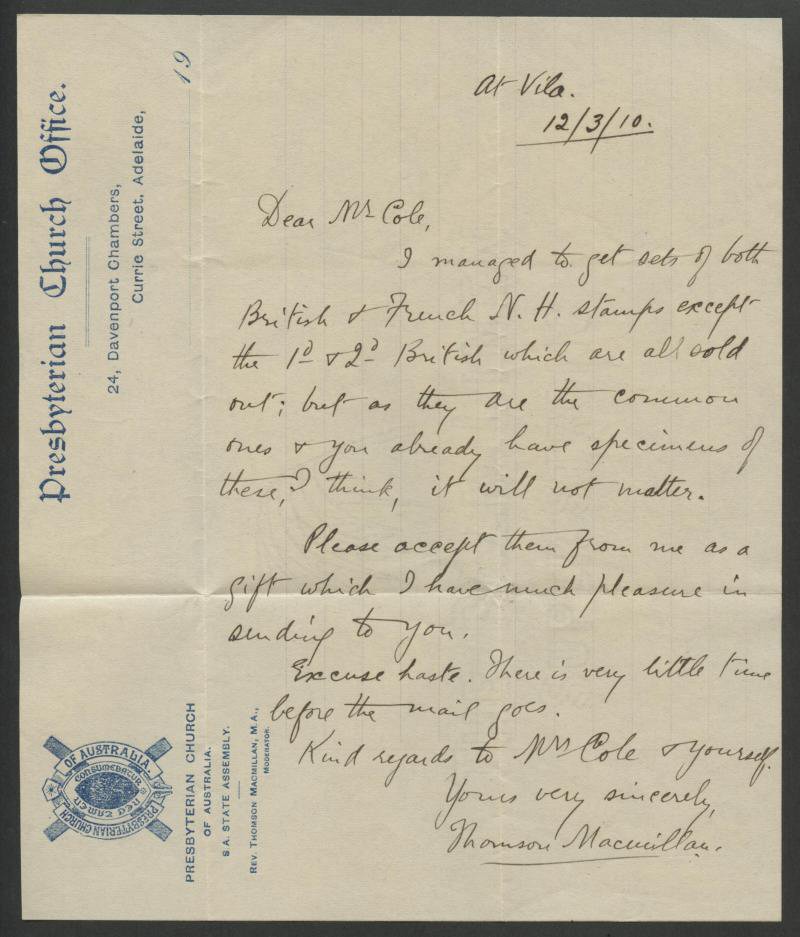 Presbyterian Church Office.
24, Davenport Chambers,
Currie Street, Adelaide,
19
At Vila.
12/3/10.
Dear Mr Cole,
I managed to get sets of both
British & French N. H. stamps except
the 1d & 2d British which are all sold
out; but as they are the common
ones & you already have specimens of
these, I think, it will not matter.
Please accept them from me as a
gift which I have much pleasure in
sending to you.
Excuse haste. There is very little time
before the mail goes.
Kind regards to Mrs Cole & yourself.
Yours very sincerely,
Thomson Macmillan.
PRESBYTERIAN CHURCH
OF AUSTRALIA.
S.A. STATE ASSEMBLY.
REV. THOMSON MACMILLAN, M.A.,
MODERATOR.
PRESBYTERIAN CHURCH
OF AUSTRALIA
NEC TAMEN
CONSUMEBATUR